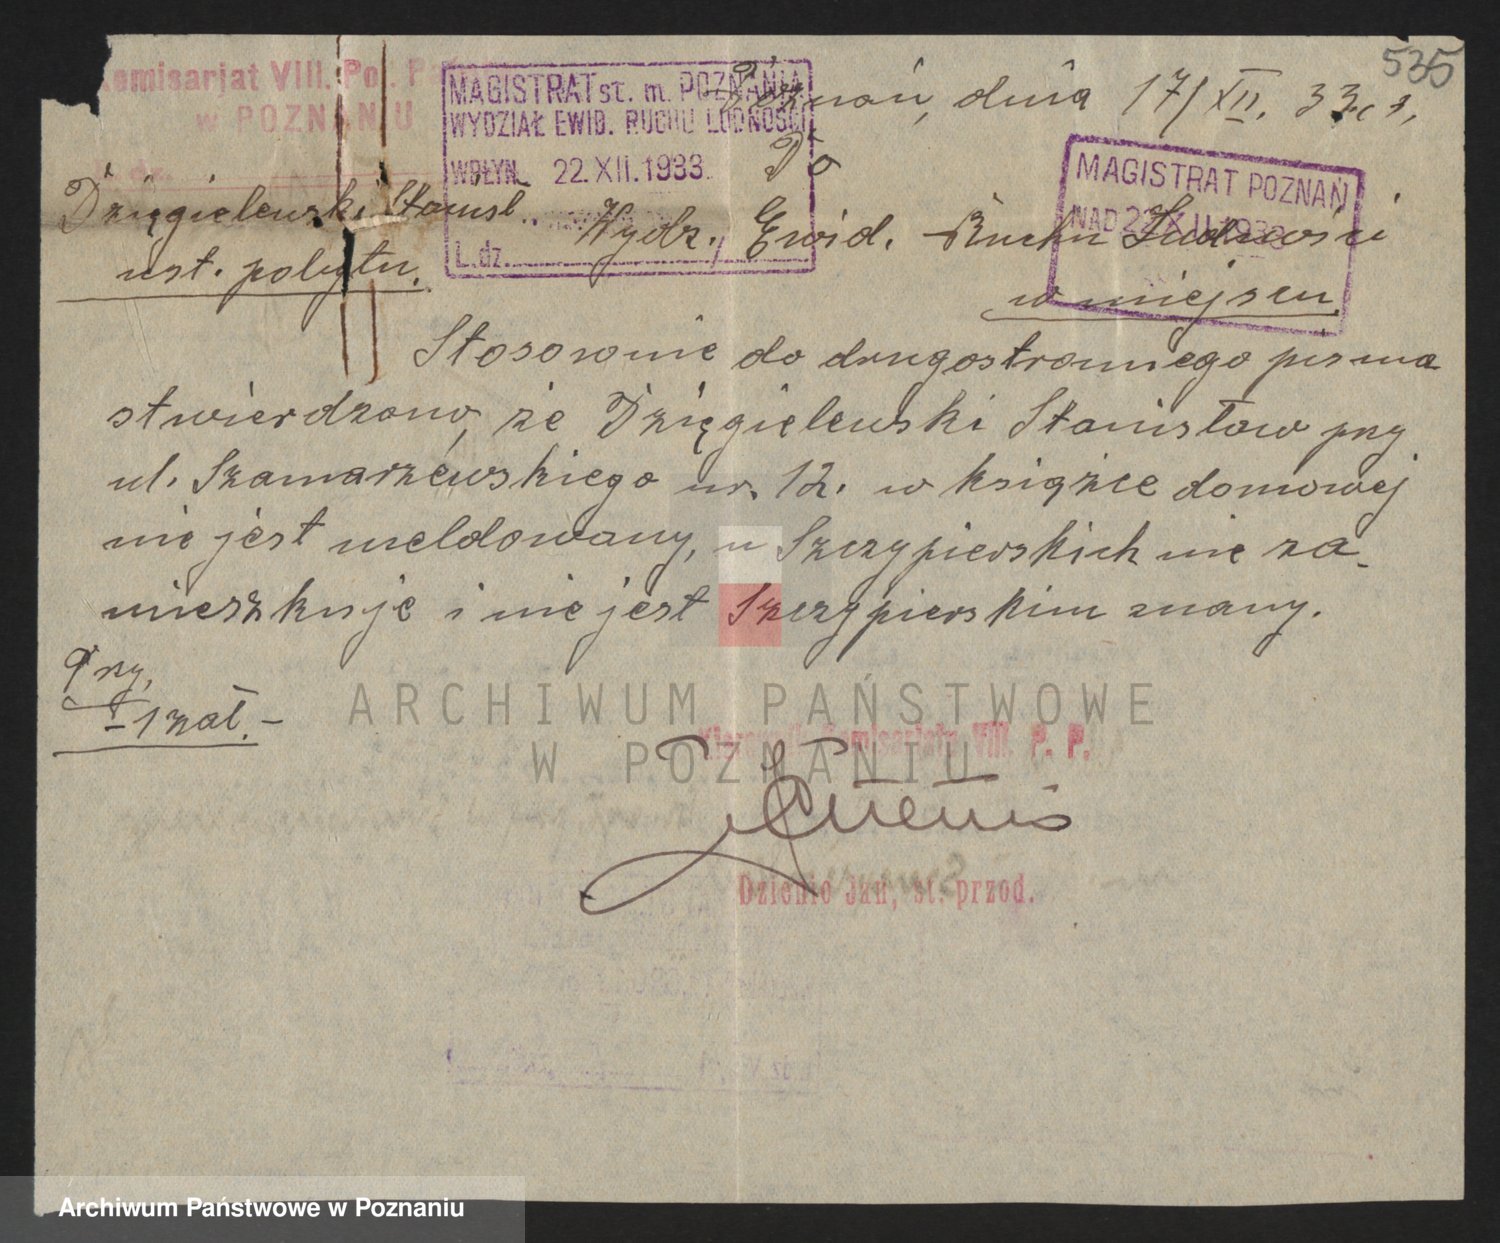 535
Komisarjat VIII. Pol. P
w POZNANIU
MAGISTRAT st. m. POZNANIA
WYDZIAŁ EWID. RUCHU LUDNOŚCI
WPŁYN. 22.XII.1933
L.dz.
Poznań, dnia 17/XII. 33 r.
MAGISTRAT POZNAŃ
NAD 22.XII.1933
Dzięgielewski Stanisł.
ust. pobytu.
Do
Wydz. Ewid. Ruchu Ludności
w miejscu.
Stosownie do drugostronnego pisma
stwierdzono, że Dzięgielewski Stanisław przy
ul. Szamarzewskiego nr. 12. w książce domowej
nie jest meldowany, u Szczypierskich nie za-
mieszkuje i nie jest Szczypierskim znany.
Przy.
- 1 zał. -
ARCHIWUM PAŃSTWOWE
W POZNANIU
Kierownik Komisariatu VIII. P. P.
Dzienio Jan, st. przod.
Archiwum Państwowe w Poznaniu